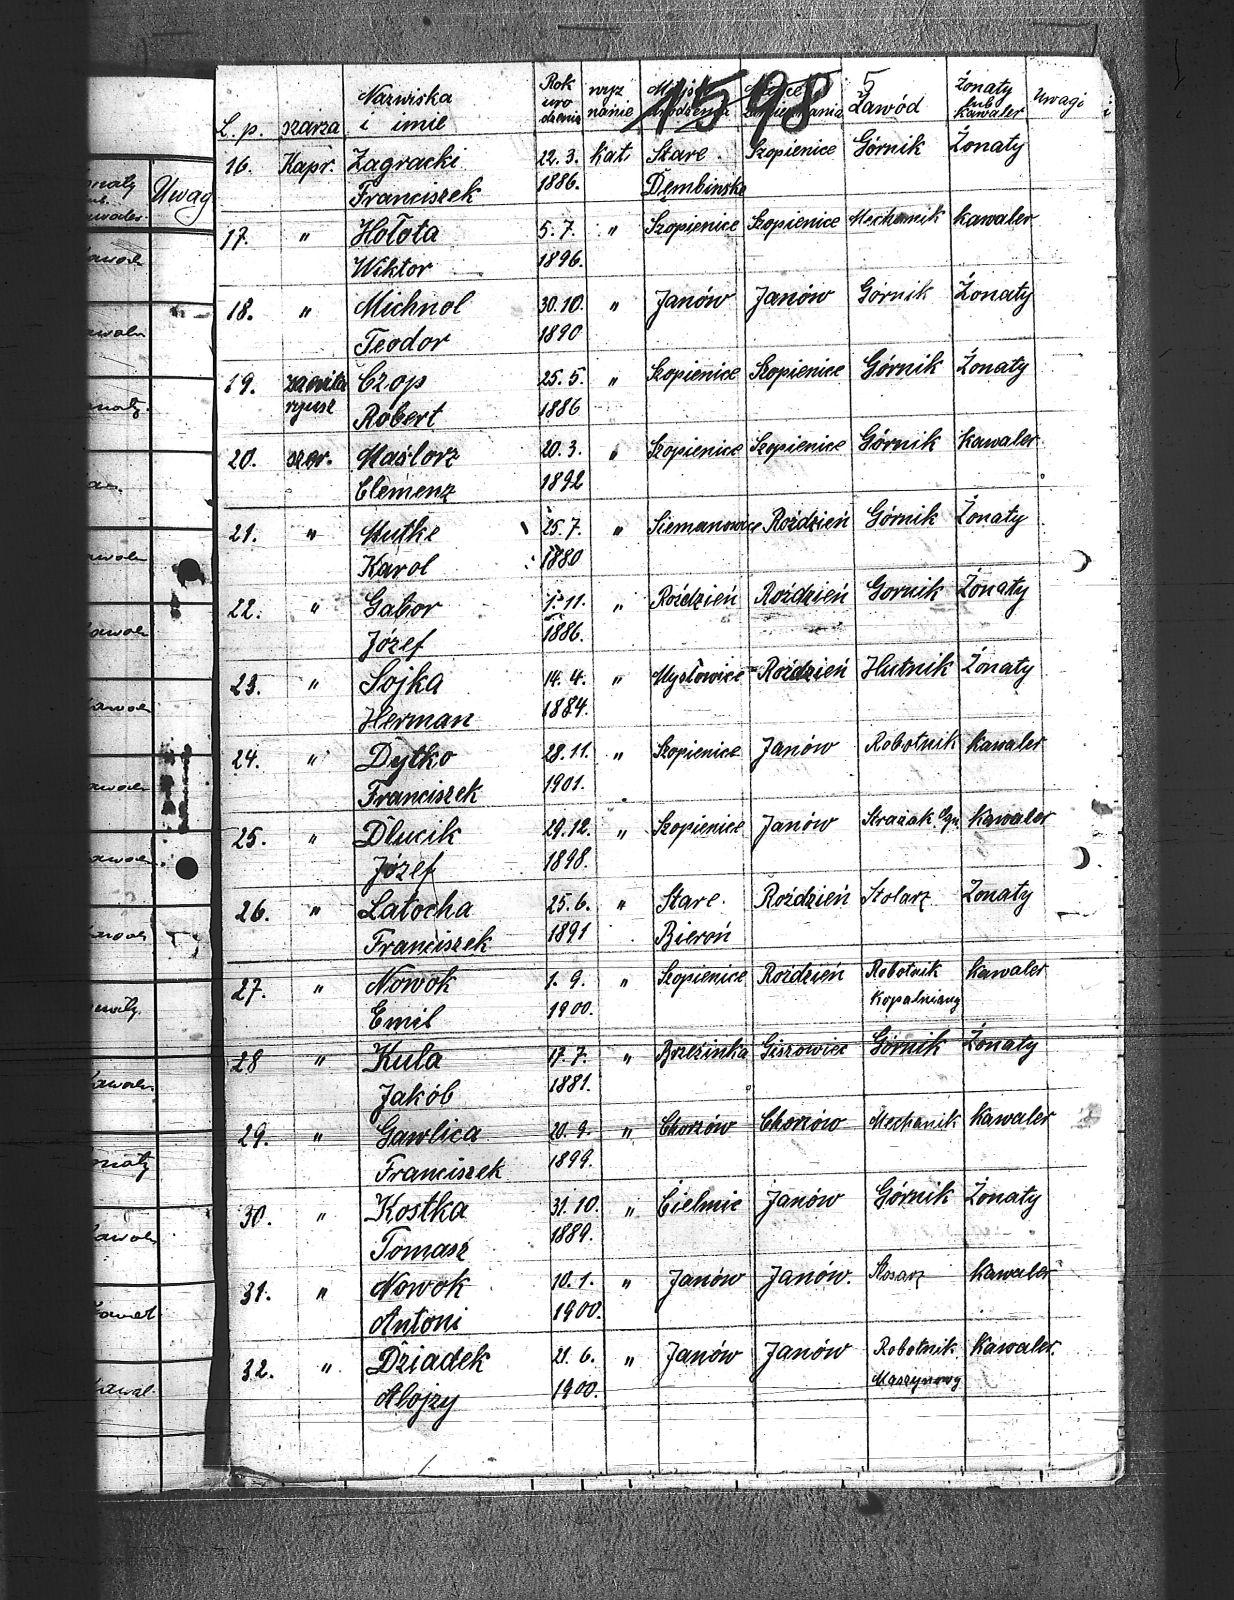 1598
5
L. p. szarża Nazwiska i imie Rok urodzenia wyznanie Miejsce urodzenia Miejsce zamieszkania Zawód Żonaty lub Kawaler Uwagi
16. Kapr. Zagracki 22. 3. kat. Stare Szopienice Górnik Żonaty
Franciszek 1886. Dembinsko
17. " Hołota 5. 7. " Szopienice Szopienice Mechanik kawaler
Wiktor 1896.
18. " Michnol 30. 10. " Janów Janów Górnik Żonaty
Teodor 1890
19. Czop 25. 5. " Szopienice Szopienice Górnik Żonaty
Robert 1886
20. szer. Maślorz 20. 3. " Szopienice Szopienice Górnik kawaler
Clemenz 1892
21. " Mutke 25. 7. " Siemanowice Roździeń Górnik Żonaty
Karol 1880
22. " Gabor 1. 11. " Roździeń Roździeń Gornik Żonaty
Józef 1886.
23. " Sojka 14. 4. " Mysłowice Roździeń Hutnik Żonaty
Herman 1884.
24. " Dytko 28. 11. " Szopienice Janów Robotnik kawaler
Franciszek 1901.
25. " Dlucik 29. 12. " Szopienice Janów Strażak kawaler
Józef 1898.
26. " Latocha 25. 6. " Stare Roździeń Stolarz Żonaty
Franciszek 1891 Bieroń
27. " Nowok 1. 9. " Szopienice Roździeń Robotnik kawaler
Emil 1900. Kopalniany
28 " Kula 17. 7. " Brzezinka Giszowiec Górnik Żonaty
Jakób 1881.
29. " Gawlica 20. 9. " Chorzów Chorzów Mechanik kawaler
Franciszek 1899.
30. " Kostka 31. 10. " Cielmic Janów Górnik Żonaty
Tomasz 1889.
31. " Nowok 10. 1. " Janów Janów. Slosarz kawaler
Antoni 1900.
32. " Dziadek 21. 6. " Janów Janów Robotnik kawaler.
Alojzy 1900. Maszynowy
Uwag